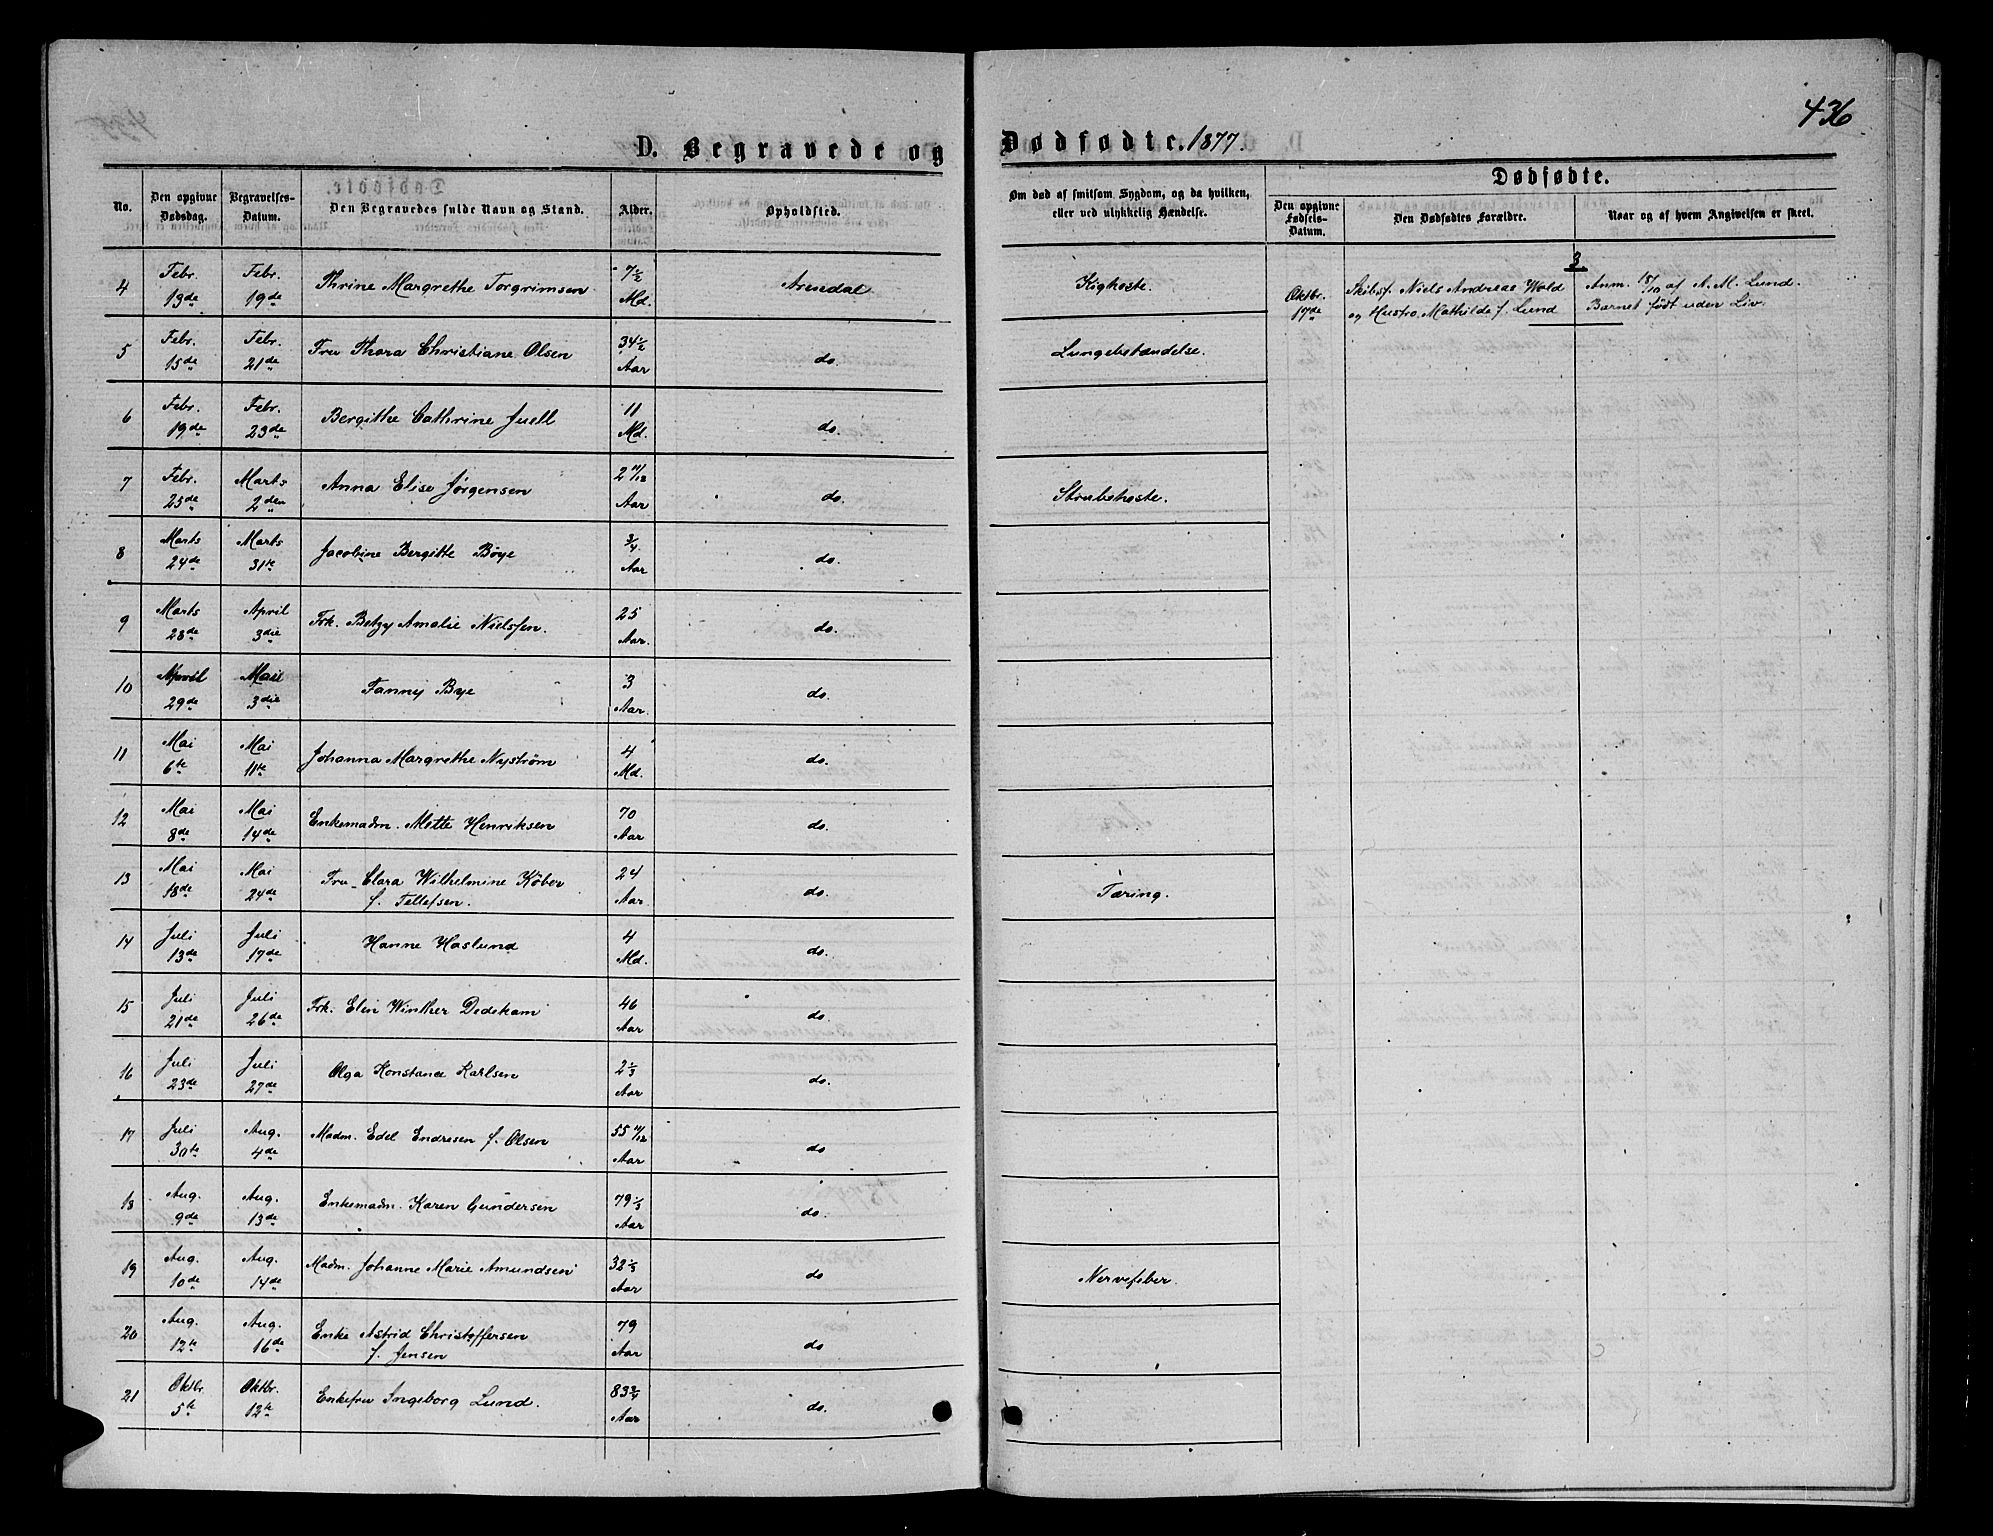 436
D. Begravede og Dødfødte. 1877.
No. | Den opgivne Dødsdag. | Begravelses-Datum. | Den Begravedes fulde Navn og Stand. | Alder. | Opholdsted. | Om død af smitsom Sygdom, og da hvilken, eller ved ulykkelig Hændelse. | Dødfødte. | Den opgivne Fødsels-Datum. | Den Dødfødtes Forældre. | Naar og af hvem Angivelsen er skeet.
4 | Febr. 13de | Febr. 19de | Thrine Margrethe Torgrimsen | 7½ Md. | Arendal | Kighoste.
3
Oktbr. 17de | Skibsf. Niels Andreas Wold og Hustro Mathilde f. Lund | Anm. 18/10 af A. M. Lund. Barnet født uden Liv.
5 | Febr. 15de | Febr. 21de | Fru Thora Christiane Olsen | 34½ Aar | do. | Lungebetændelse.
6 | Febr. 19de | Febr. 23de | Bergithe Cathrine Juell | 11 Md. | do.
7 | Febr. 25de | Marts 2den | Anna Elise Jørgensen | 2 11/12 Aar | do. | Strubehoste.
8 | Marts 24de | Marts 31te | Jacobine Bergitte Bøye | ¾ Aar | do.
9 | Marts 28de | April 3die | Frk. Betzy Amalie Nielsen. | 25 Aar. | do.
10 | April 29de | Mai 3die | Fanny Bye | 3 Aar. | do.
11 | Mai 6te | Mai 11te | Johanna Margrethe Nystrøm | 4 Md. | do.
12 | Mai 8de | Mai 14de | Enkemadm. Mette Henriksen | 70 Aar | do.
13 | Mai 18de | Mai 24de | Fru Clara Wilhelmine Köber f. Tellefsen. | 24 Aar. | do. | Tæring.
14 | Juli 13de | Juli 17de | Hanne Haslund | 4 Md. | do.
15 | Juli 21de | Juli 26de | Frk. Elen Winther Dedekam | 46 Aar | do.
16 | Juli 23de | Juli 27de | Olga Konstance Karlsen | 2⅓ Aar | do.
17 | Juli 30te | Aug. 4de | Madm. Edel Endresen f. Olsen | 55 11/12 Aar | do
18 | Aug. 9de | Aug. 13de | Enkemadm. Karen Gundersen | 79⅓ Aar | do.
19 | Aug. 10de | Aug. 14de | Madm. Johanne Marie Amundsen | 32⅓ Aar | do | Nervefeber.
20 | Aug. 12te | Aug. 16de | Enke Astrid Christoffersen f. Jensen | 79 Aar | do
21 | Oktbr. 5te | Oktbr. 12te | Enkefru Ingeborg Lund. | 83¾ Aar | do.